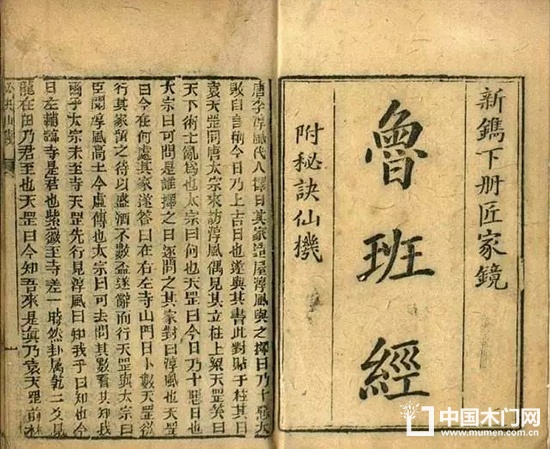 新鐫下册匠家鏡
魯班經
附秘訣仙機
唐李淳風代人擇日其家造屋淳風與之擇日乃十惡大
敗日自稱今日乃上吉日也遂與其書此對貼于柱其日
袁天罡同唐太宗來訪淳風偶見其立柱上梁天罡笑曰
天下術士亂爲也太宗曰何也天罡曰今日乃十惡日也
太宗曰可問是誰擇之日逐問之其家對曰淳風也天罡
曰今在何處其家遂答曰在右左寺山門日卜數天罡與
行其家留之待以盛酒不數盃遂辭而行天罡與太宗曰
臣聞淳風高士今虛傳也太宗曰可去問其數看其知我
兩乎太宗未至寺天罡先行見淳風曰知我乎曰知也今
日左輔臨寺是君也紫薇至寺差一時然卦属乾二爻見
龍在田乃君至也天罡曰今知吾來是眞乃袁天罡前
中国木门网
www.mumen.com.cn